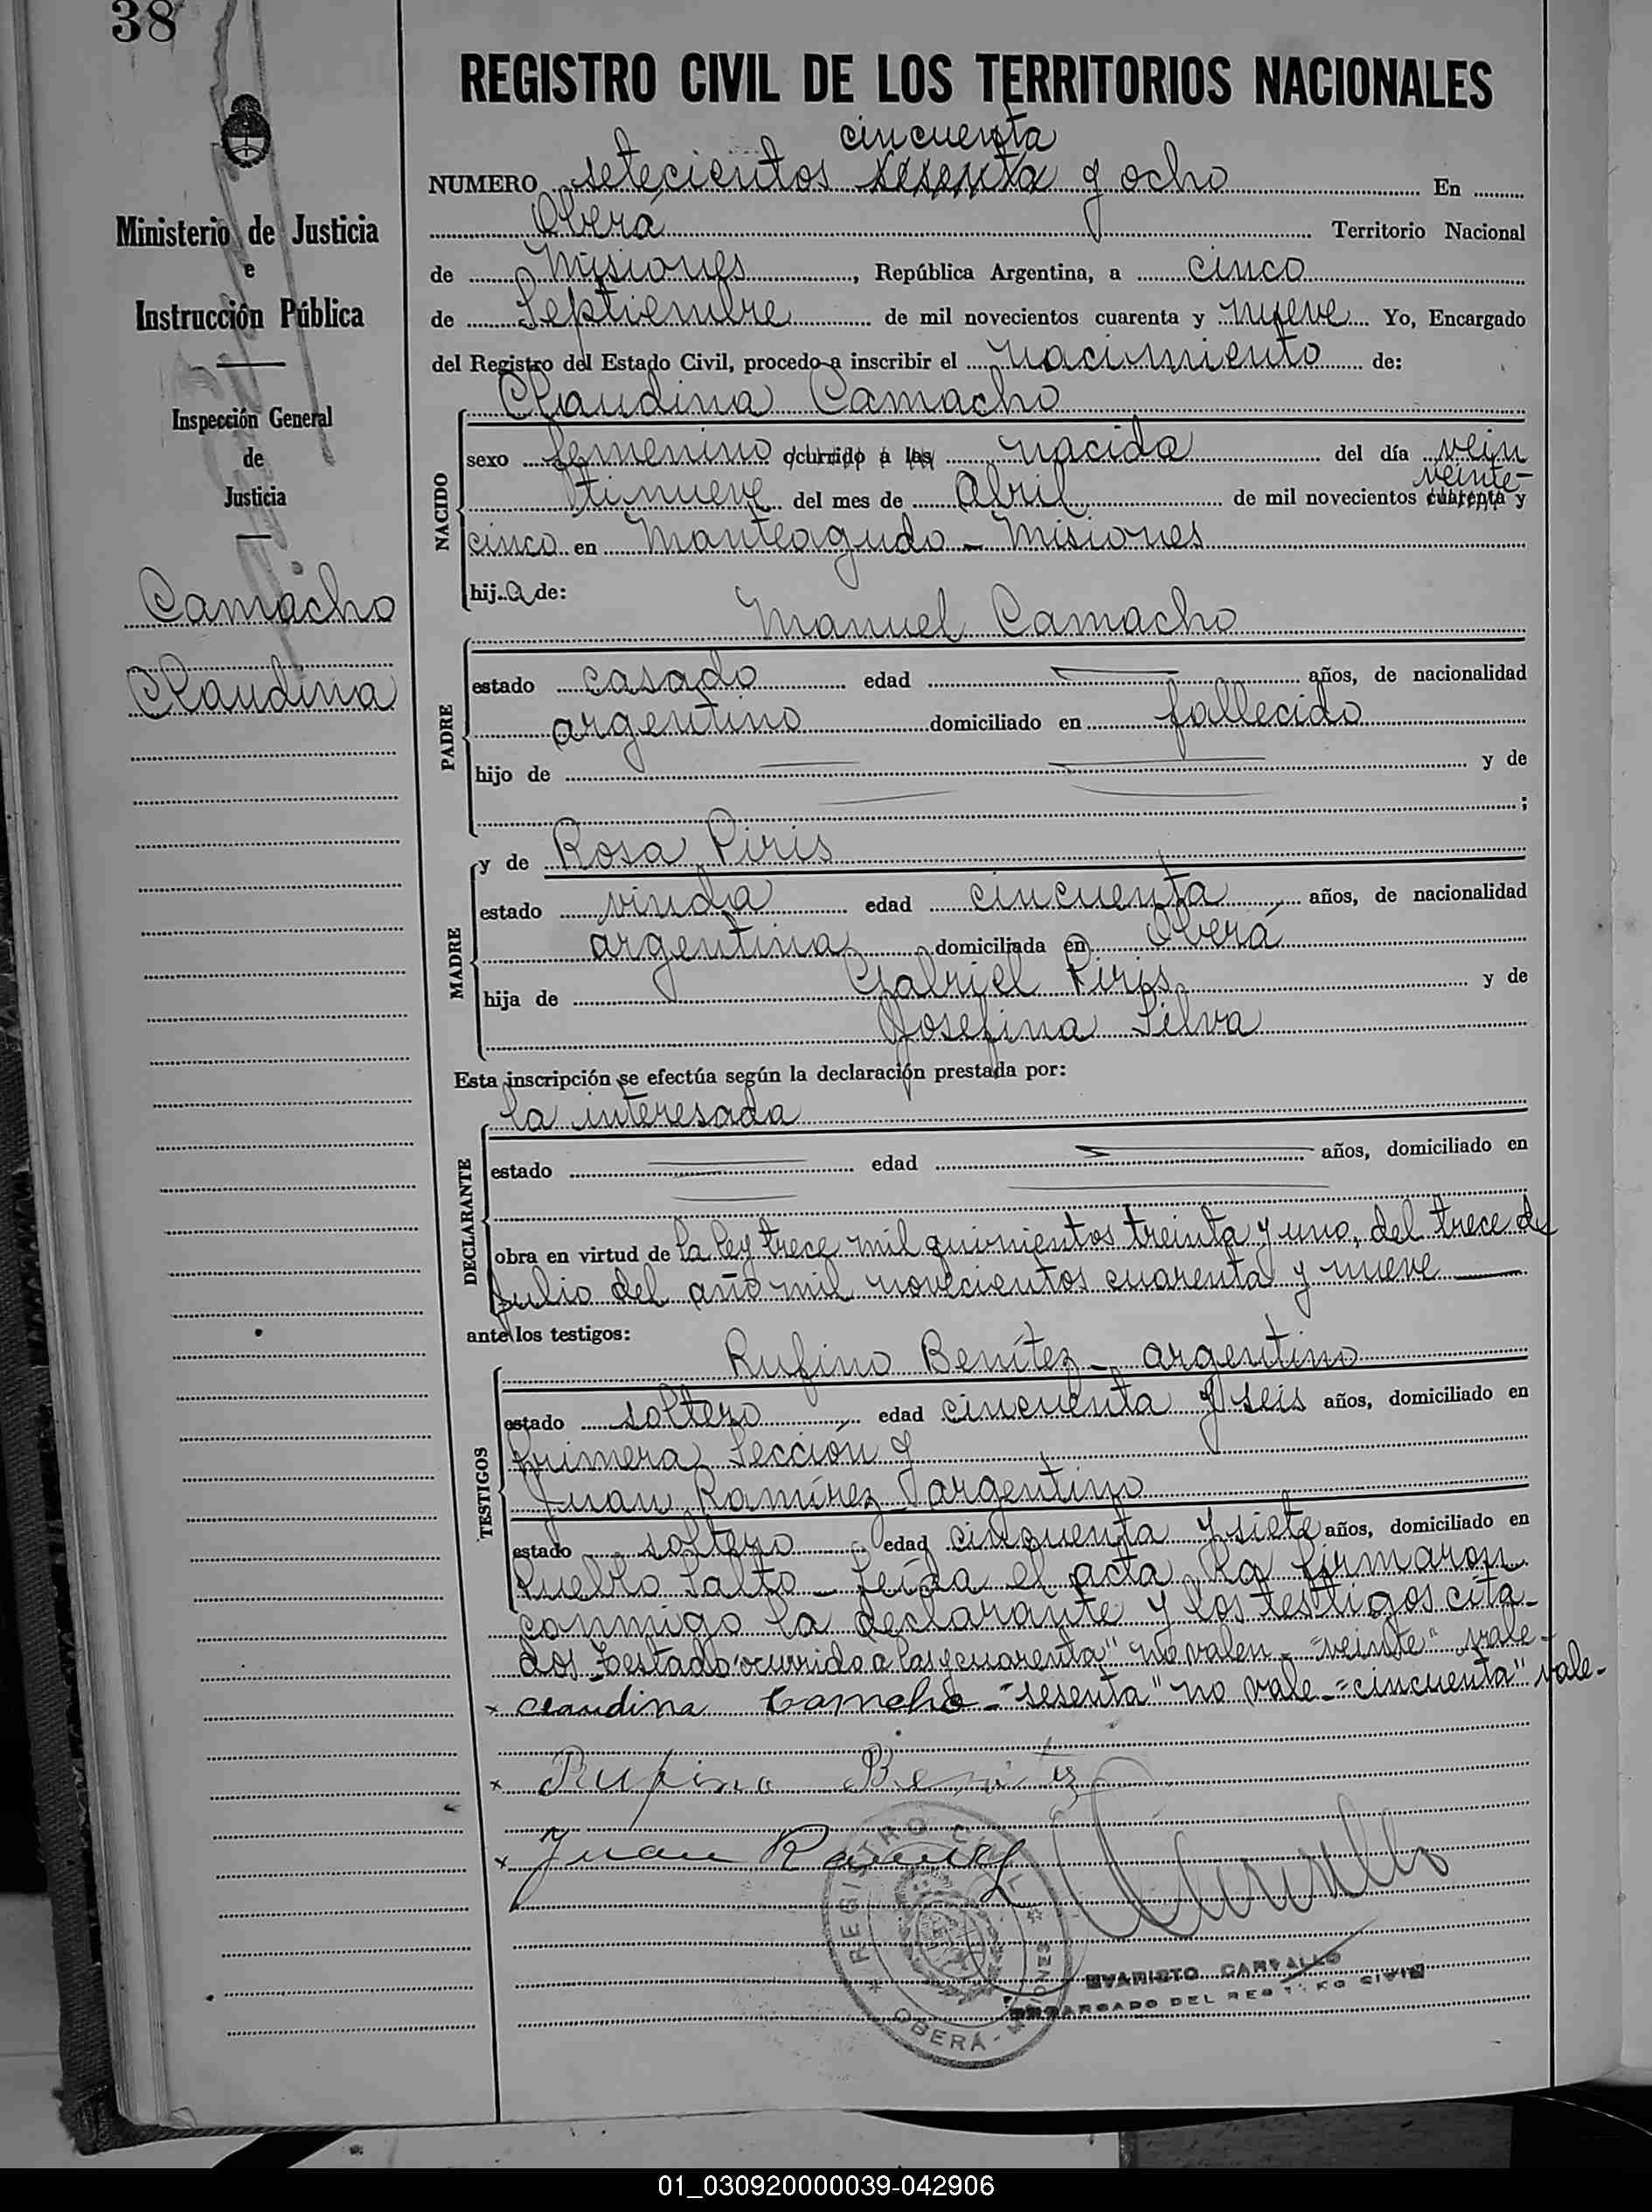 38
REGISTRO CIVIL DE LOS TERRITORIOS NACIONALES
cincuenta
NUMERO setecientos sesenta y ocho En
Oberá Territorio Nacional
de Misiones, República Argentina, a cinco
de Septiembre de mil novecientos cuarenta y nueve Yo, Encargado
del Registro del Estado Civil, procedo a inscribir el nacimiento de:
Claudina Camacho
NACIDO
sexo femenino ocurrido a las nacida del día vein
veinte
tinueve del mes de Abril de mil novecientos cuarenta y
cinco en Manteagudo - Misiones
hija de:
Manuel Camacho
PADRE
estado casado edad años, de nacionalidad
argentino domiciliado en fallecido
hijo de y de
;
MADRE
y de Rosa Piris
estado viuda edad cincuenta años, de nacionalidad
argentina domiciliada en Oberá
hija de Gabriel Piris y de
Josefina Silva
Esta inscripción se efectúa según la declaración prestada por:
la interesada
DECLARANTE
estado edad años, domiciliado en
obra en virtud de la ley trece mil quinientos treinta y uno, del trece de
Julio del año mil novecientos cuarenta y nueve
ante los testigos:
Rufino Benítez - argentino
TESTIGOS
estado soltero edad cincuenta y seis años, domiciliado en
primera Sección y
Juan Ramírez argentino
estado soltero edad cincuenta y siete años, domiciliado en
Pueblo Salto - Leída el acta la firmaron
conmigo la declarante y los testigos cita-
dos Testado "ocurrido a las y cuarenta" no valen - "veinte" vale -
x claudina Camcho - "sesenta" no vale - "cincuenta" vale -
x Rufino Benitez
x Juan Ramirez
REGISTRO CIVIL
OBERÁ - MISIONES
EVARISTO CARVALLO
ENCARGADO DEL REGISTRO CIVIL
Ministerio de Justicia
e
Instrucción Pública
Inspección General
de
Justicia
Camacho
Claudina
01_030920000039-042906